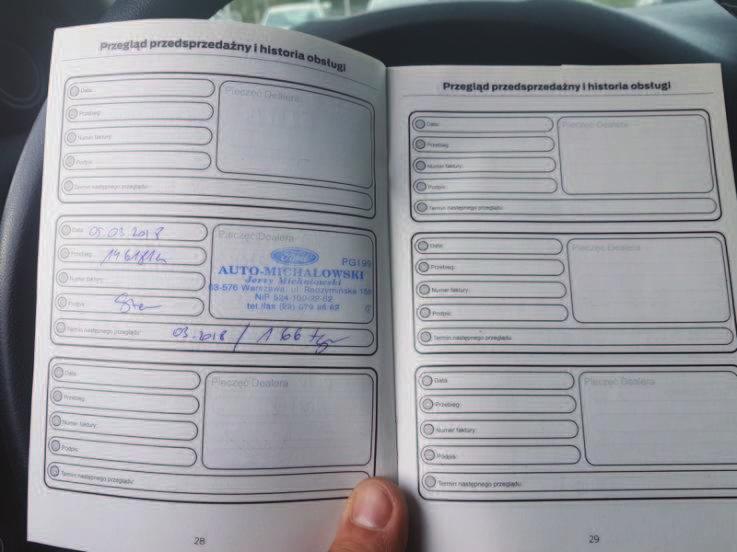 Przegląd przedsprzedażny i historia obsługi
Data:
Pieczęć Dealera
Przebieg:
Numer faktury:
Podpis:
Termin następnego przeglądu:
Data: 05.03.2018
Pieczęć Dealera
Przebieg:
Ford
PG199
AUTO-MICHAŁOWSKI
Jerzy Michałowski
Numer faktury:
Warszawa, ul. Radzymińska
NIP
Podpis:
tel./fax
Termin następnego przeglądu: 03.2018 / 166
Data:
Pieczęć Dealera
Przebieg:
Numer faktury:
Podpis:
Termin następnego przeglądu:
28
Przegląd przedsprzedażny i historia obsługi
Data:
Pieczęć Dealera
Przebieg:
Numer faktury:
Podpis:
Termin następnego przeglądu:
Data:
Pieczęć Dealera
Przebieg:
Numer faktury:
Podpis:
Termin następnego przeglądu:
Data:
Pieczęć Dealera
Przebieg:
Numer faktury:
Podpis:
Termin następnego przeglądu:
29